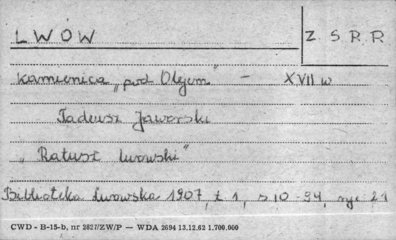 LWÓW
Z. S. R. R
kamienica „pod Olejem" - XVII w
Tadeusz Jaworski
„Ratusz lwowski"
Biblioteka Lwowska 1907, t 1, s 10-94, ryc. 21
CWD - B-15-b, nr 2827/ZW/P — WDA 2694 13.12.62 1.700.000